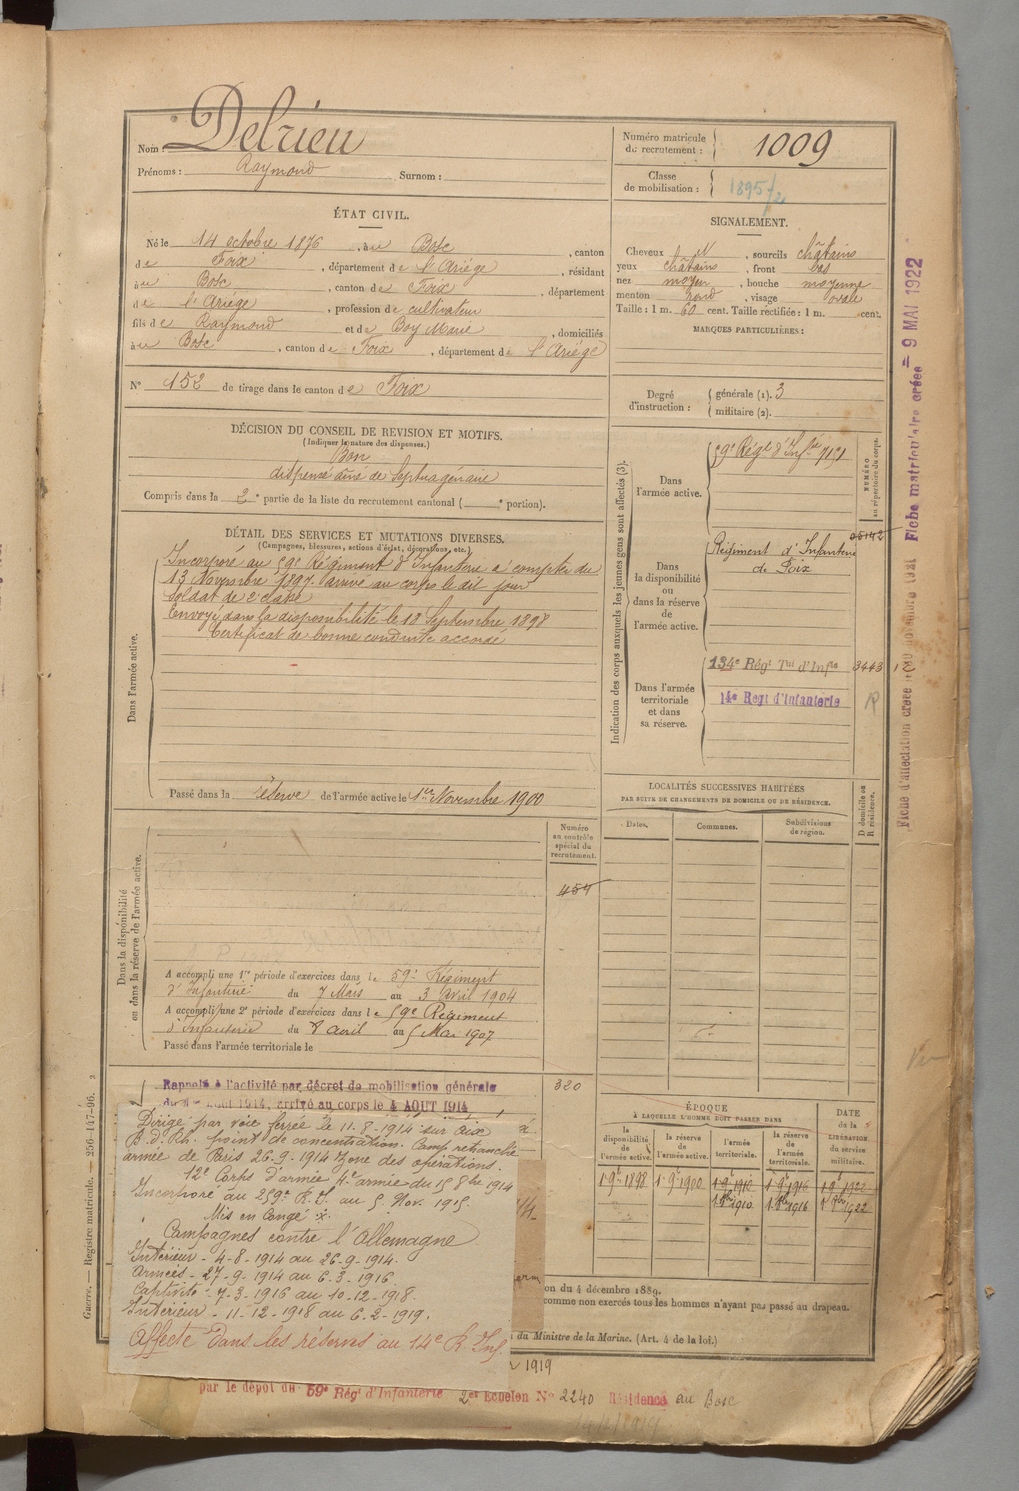 Nom : Delrieu
Prénoms : Raymond Surnom :
Numéro matricule
du recrutement : 1009
Classe
de mobilisation : 1895/2
ÉTAT CIVIL.
Né le 14 octobre 1876, à u Bosc, canton
de Foix, département de l'Ariége, résidant
à u Bosc, canton de Foix, département
de l'Ariége, profession de cultivateur
fils de Raymond et de Boy Marie, domiciliés
à u Bosc, canton de Foix, département de l'Ariége
N° 152 de tirage dans le canton de Foix
SIGNALEMENT.
Cheveux N, sourcils châtains
yeux châtains, front bas
nez moyen, bouche moyenne
menton rond, visage ovale
Taille : 1 m. 60 cent. Taille rectifiée : 1 m. cent.
MARQUES PARTICULIÈRES :
Degré
d'instruction :
générale (1). 3
militaire (2).
DÉCISION DU CONSEIL DE REVISION ET MOTIFS.
(Indiquer la nature des dispenses.)
Bon
dispensé aîné de Septuagénaire
Compris dans la 2e partie de la liste du recrutement cantonal ( e portion).
DÉTAIL DES SERVICES ET MUTATIONS DIVERSES.
(Campagnes, blessures, actions d'éclat, décorations, etc.)
Dans l'armée active.
Incorporé au 59e Régiment d'Infanterie à compter du
13 Novembre 1897. arrivé au corps le dit jour
Soldat de 2e classe
Envoyé dans la disponibilité le 18 Septembre 1898
Certificat de bonne conduite accordé
Passé dans la réserve de l'armée active le 1er Novembre 1900
Indication des corps auxquels les jeunes gens sont affectés (3).
NUMÉRO
au répertoire du corps.
Dans
l'armée active.
59e Régt d'Infrie 7171
Dans
la disponibilité
ou
dans la réserve
de
l'armée active.
Régiment d'Infanterie
de Foix
05142
Dans l'armée
territoriale
et dans
sa réserve.
134e Régt Tal d'Infie 3443
14e Regt d'Infanterie R
LOCALITÉS SUCCESSIVES HABITÉES
PAR SUITE DE CHANGEMENTS DE DOMICILE OU DE RÉSIDENCE.
Dates. Communes. Subdivisions
de région.
D domicile ou
R résidence.
Dans la disponibilité
ou dans la réserve de l'armée active.
Numéro
au contrôle
spécial du
recrutement.
454
A accompli une 1re période d'exercices dans le 59e Régiment
d'Infanterie du 7 Mars au 3 avril 1904
A accompli une 2e période d'exercices dans le 59e Régiment
d'Infanterie du 8 avril au 5 Mai 1907
Passé dans l'armée territoriale le
Rappelé à l'activité par décret de mobilisation générale
du août 1914, arrivé au corps le 4 AOUT 1914
320
Dirigé par voie ferrée le 11.8.1914 sur aix
B.d.Rh. point de concentration. Camp retranché
armée de Paris 26.9.1914 Zone des opérations.
12e Corps d'armée 4e armée du 15 8bre 1914
Incorporé au 259e R.I. au 5 Nov. 1915.
Mis en Congé
Campagnes contre l'Allemagne
Intérieur - 4-8-1914 au 26-9-1914.
Armées - 27-9-1914 au 6-3-1916.
Captivité : 7-3-1916 au 10-12-1918.
Intérieur - 11-12-1918 au 6-2-1919.
Affecté dans les réserves au 14e R. Inf
ÉPOQUE
À LAQUELLE L'HOMME DOIT PASSER DANS
la
disponibilité
de
l'armée active.
la réserve
de
l'armée active.
l'armée
territoriale.
la réserve
de
l'armée
territoriale.
DATE
de la
LIBÉRATION
du service
militaire.
1 9e 1898 1 9e 1900 1 9e 1910 1 9e 1916 1 9e 1922
1 8bre 1910 1 8bre 1916 1 8bre 1922
on du 4 décembre 1889.
comme non exercés tous les hommes n'ayant pas passé au drapeau.
du Ministre de la Marine. (Art. 4 de la loi.)
1919
par le dépot du 59e Régt d'Infanterie 2er Echelon N° 2240 Résidence au Bosc
Guerre. — Registre matricule. — 256-147-96.
Fiche matriculaire créée = 9 MAI 1922